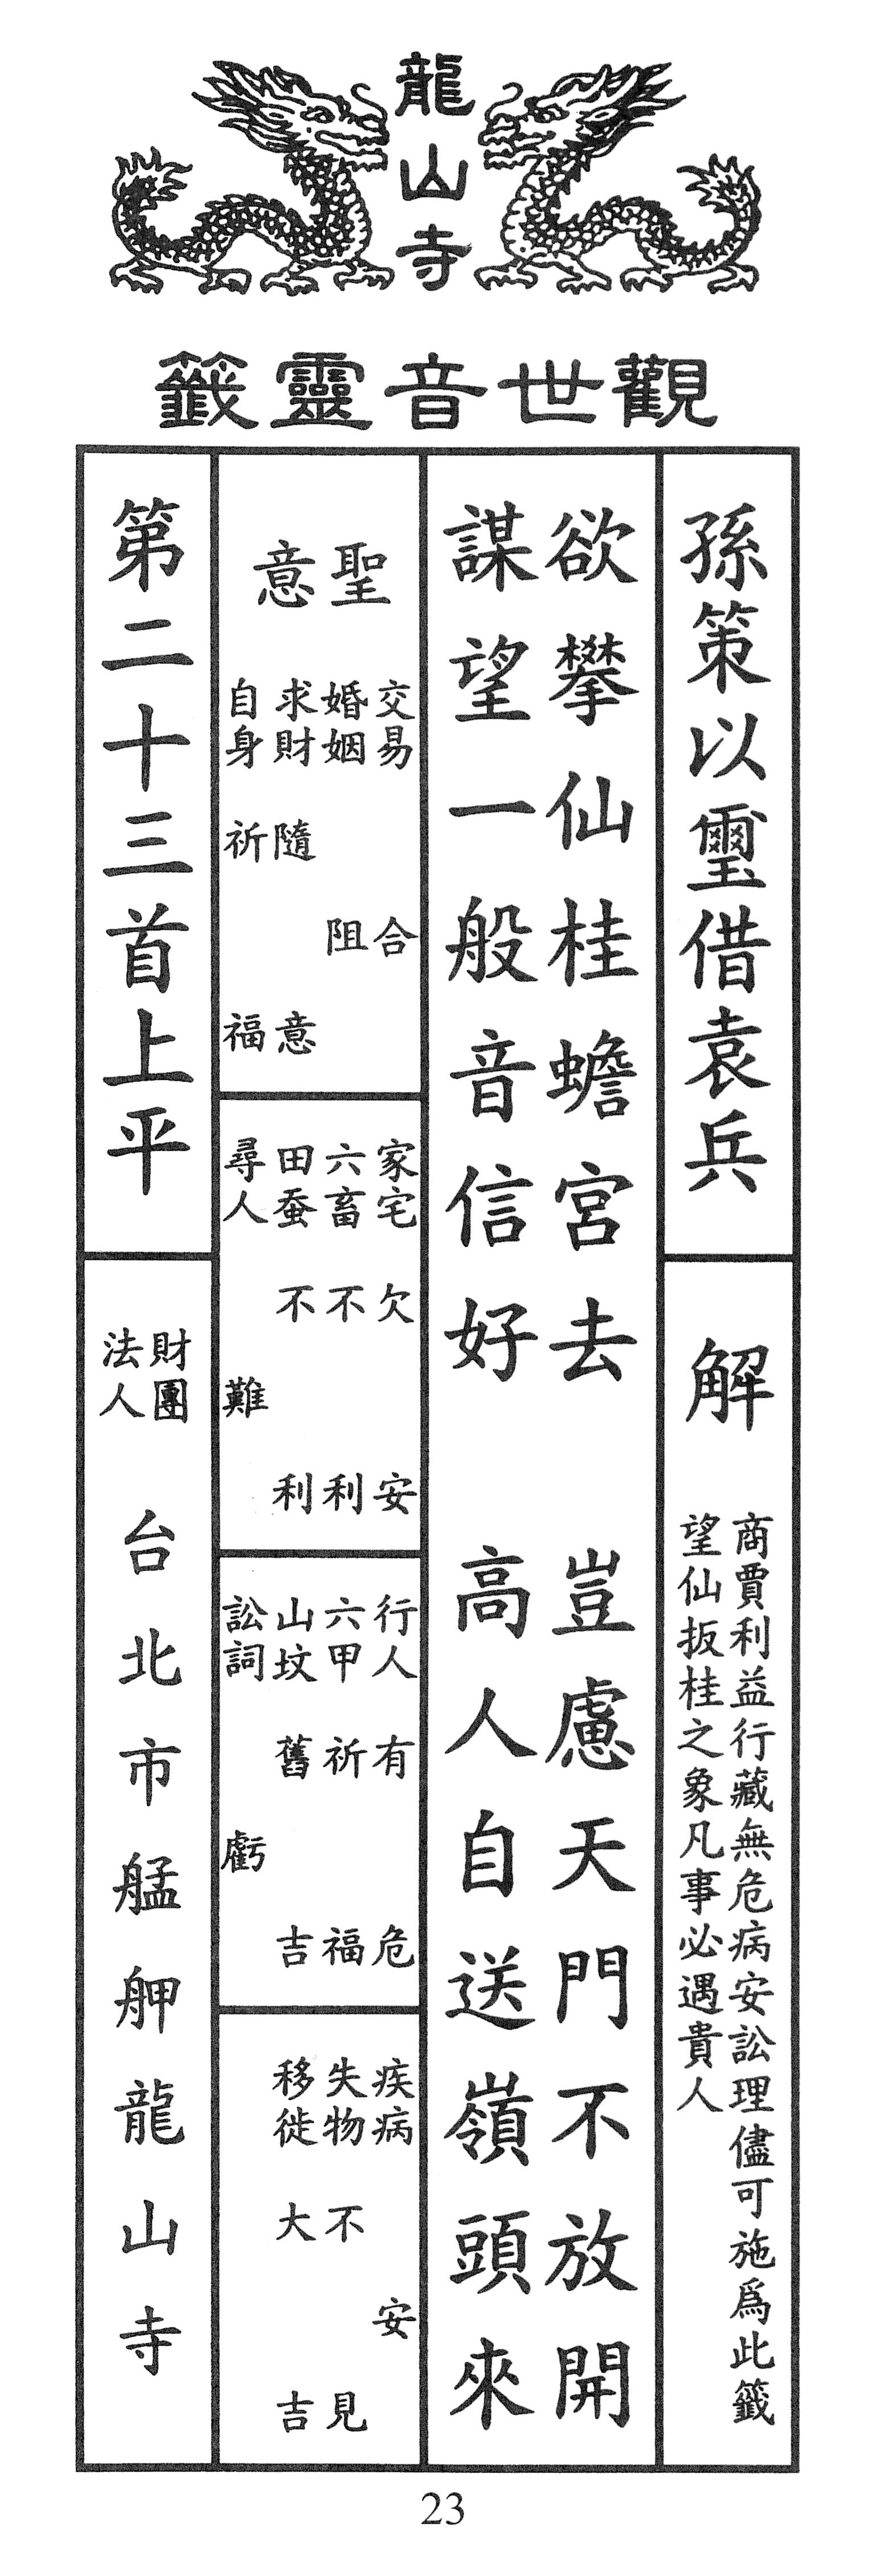 龍山寺
觀世音靈籤
孫策以璽借袁兵
解
商賈利益行藏無危病安訟理儘可施爲此籤
望仙扳桂之象凡事必遇貴人
欲攀仙桂蟾宮去 豈慮天門不放開
謀望一般音信好 高人自送嶺頭來
聖意
交易 合
婚姻 阻
求財 隨意
自身 祈福
家宅 欠安
六畜 不利
田蚕 不利
尋人 難
行人 有危
六甲 祈福
山坟 舊吉
訟詞 虧
疾病 安
失物 不見
移徙 大吉
第二十三首上平
財團
法人
台北市艋舺龍山寺
23